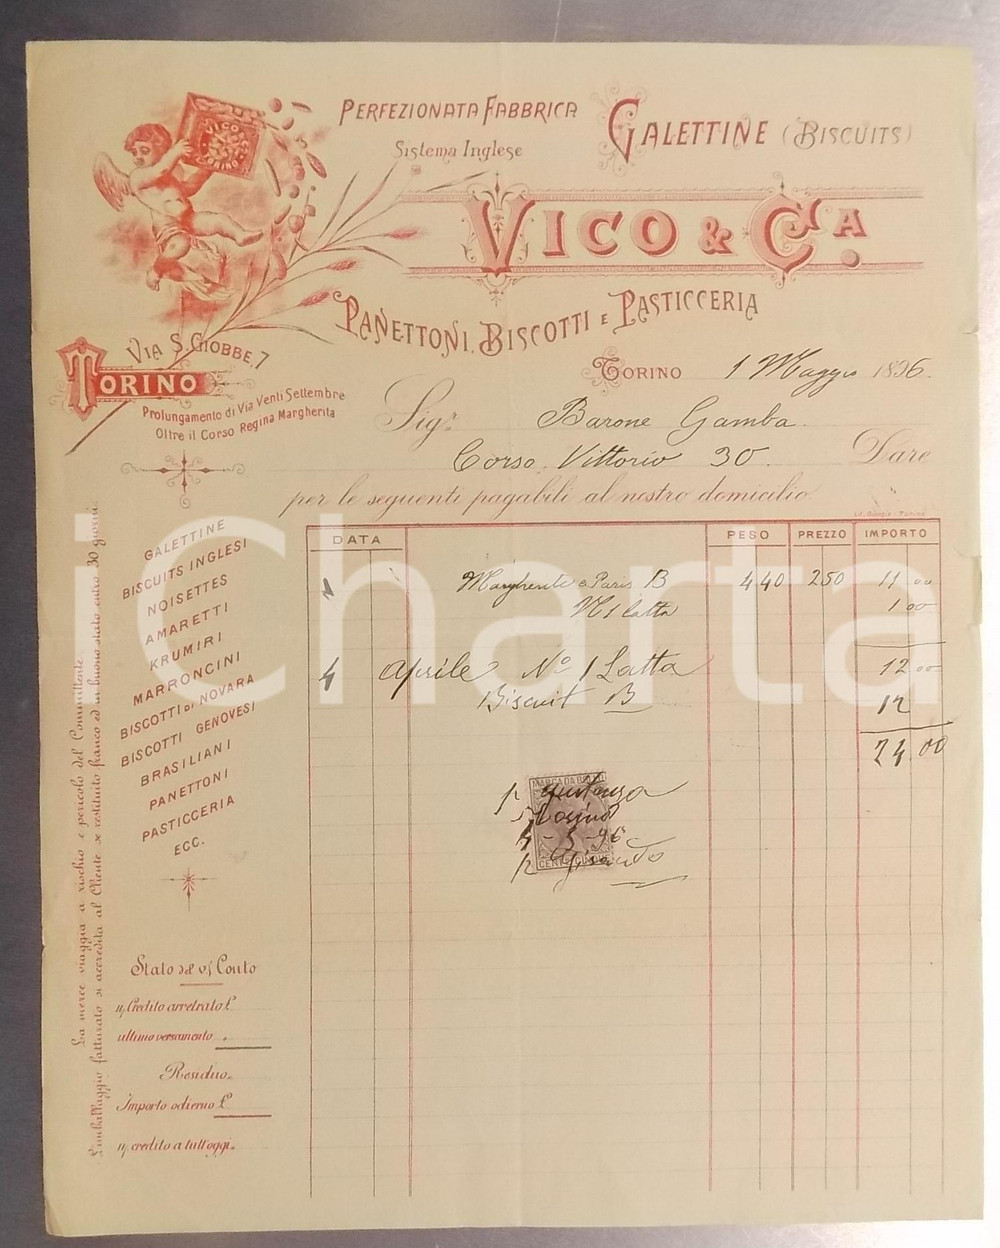 PERFEZIONATA FABBRICA
Sistema Inglese
GALETTINE (BISCUITS)
VICO & Cia.
PANETTONI, BISCOTTI E PASTICCERIA
VICO & C
TORINO
VIA S. GIOBBE, 7
TORINO
Prolungamento di Via Venti Settembre
Oltre il Corso Regina Margherita
TORINO 1 Maggio 1896.
Sigr. Barone Gamba
Corso Vittorio 30. Dare
per le seguenti pagabili al nostro domicilio
DATA PESO PREZZO IMPORTO
Margherite e Paris B 4 40 2 50 11 00
N 1 latta 1 00
4 Aprile No 1 Latta 12 00
Biscuit B 12
24 00
MARCA DA BOLLO
p quitanza
Torino
4-5-96
p
GALETTINE
BISCUITS INGLESI
NOISETTES
AMARETTI
KRUMIRI
MARRONCINI
BISCOTTI DI NOVARA
BISCOTTI GENOVESI
BRASILIANI
PANETTONI
PASTICCERIA
ECC.
La merce viaggia a rischio e pericolo del Committente
L'imballaggio fatturato si accredita al Cliente se restituito franco ed in buono stato entro 30 giorni.
Stato del v/ Conto
n/ Credito arretrato £
ultimo versamento "
Residuo
Importo odierno £
n/ credito a tutt'oggi
iCharta